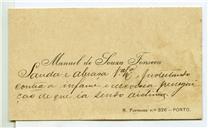 Manuel de Souza Fonseca
Sauda e abraça V. Exª, protestando
contra a infame e odiosa persegui
ção de que ia sendo victima.
R. Formosa n.º 326 - PORTO.